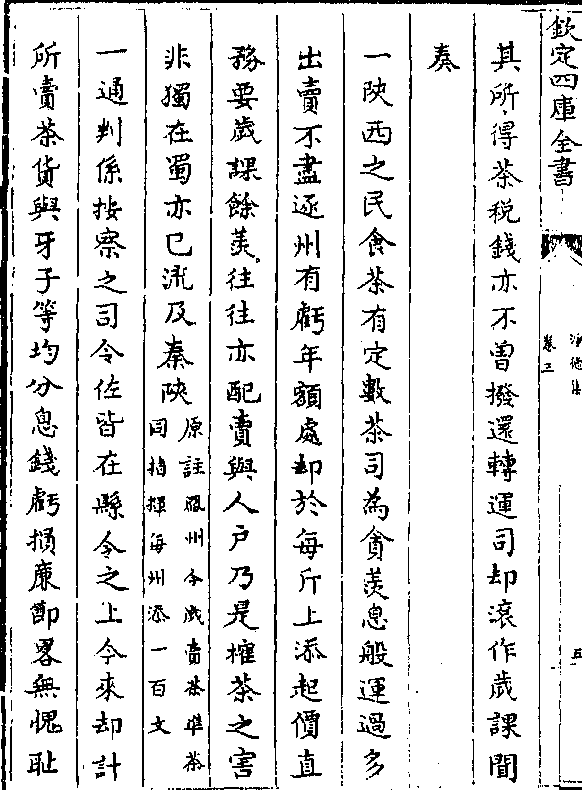 欽定四庫全書
卷三
五
其所得茶税錢亦不曽撥還轉運司却滚作歳課聞
奏
一陜西之民食茶有定數茶司為貪羡息般運過多
出賣不盡逐州有虧年額處却於每斤上添起價直
務要歳課餘羡往往亦配賣與人户乃是榷茶之害
非獨在蜀亦已流及秦陜
原註 州今歳賣茶準茶
司指揮每州添一百文
一通判係按察之司令佐皆在縣令之上今來却計
所賣茶貨與牙子等均分息錢虧損廉節畧無愧耻